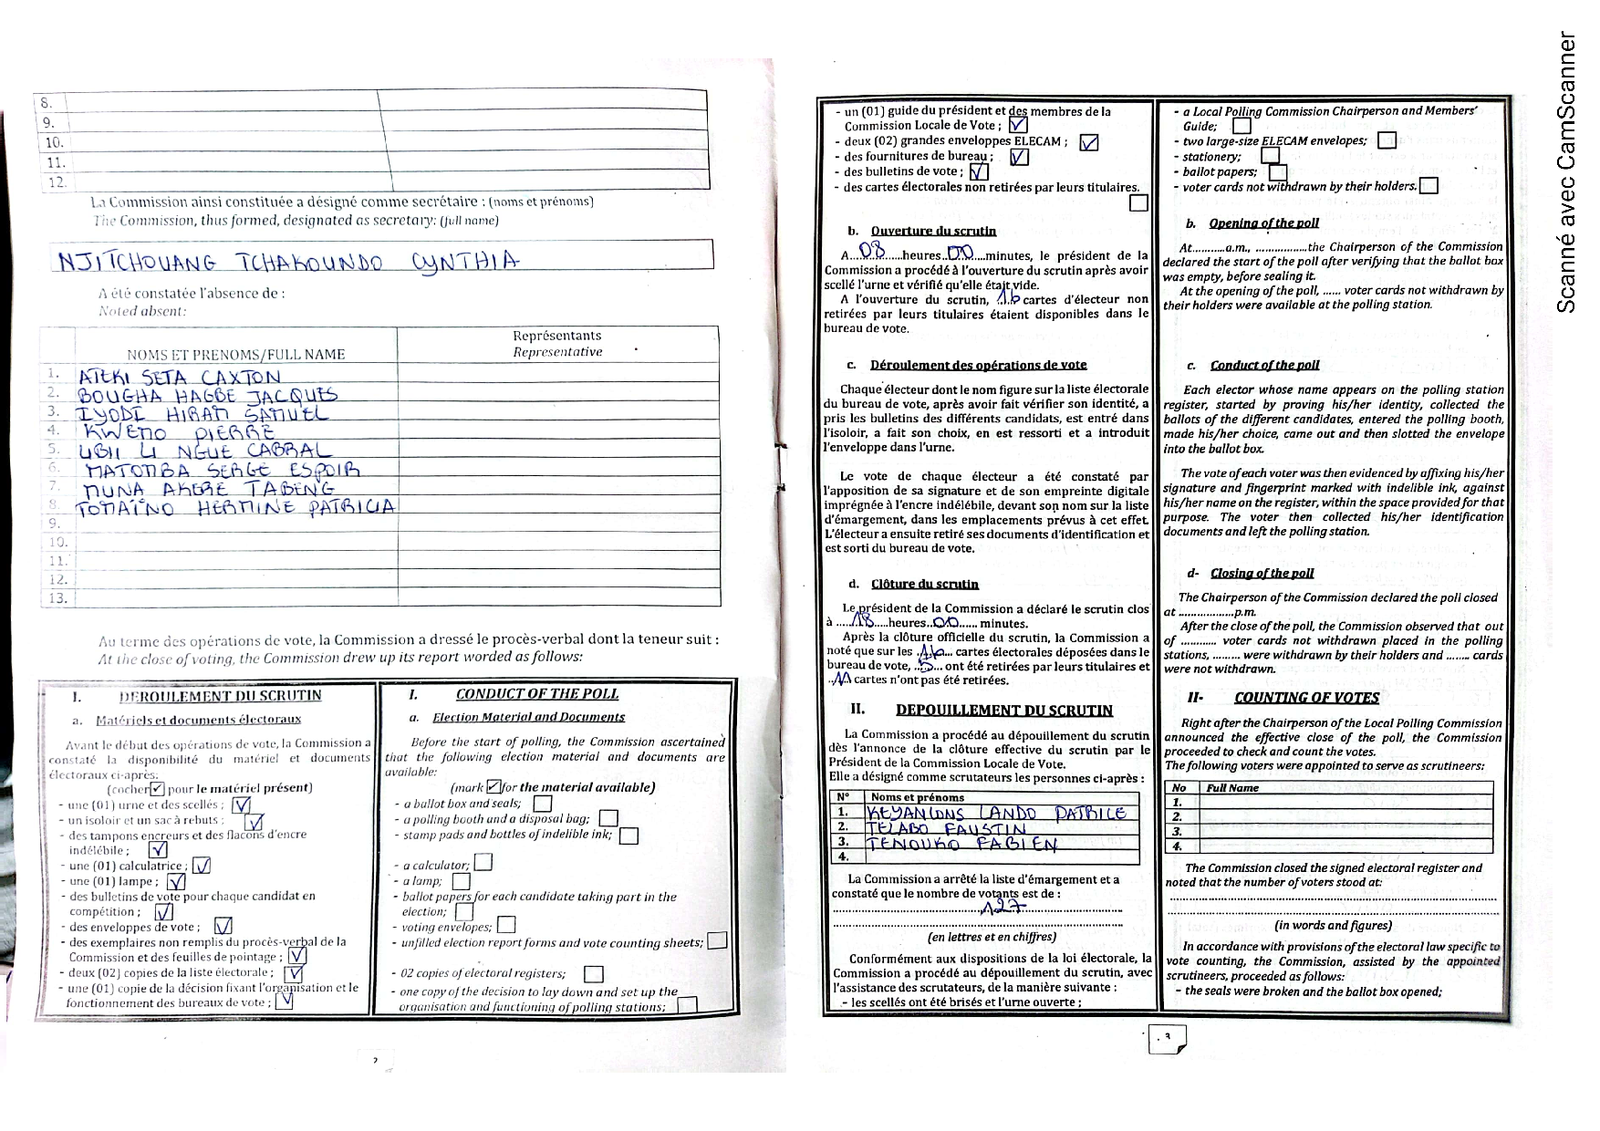 8.
9.
10.
11.
12.
La Commission ainsi constituée a désigné comme secrétaire : (noms et prénoms)
The Commission, thus formed, designated as secretary: (full name)
NJITCHOUANG TCHAKOUNDO CYNTHIA
A été constatée l'absence de :
Noted absent:
NOMS ET PRENOMS/FULL NAME
Représentants
Representative
1. ATEKI SETA CAXTON
2. BOUGHA HAGBE JACQUES
3. IYODI HIRAM SAMUEL
4. KWEMO PIERRE
5. LIBII LI NGUE CABRAL
6. MATOMBA SERGE ESPOIR
7. MUNA AKERE TABENG
8. TOMAÏNO HERMINE PATRICIA
9.
10.
11.
12.
13.
Au terme des opérations de vote, la Commission a dressé le procès-verbal dont la teneur suit :
At the close of voting, the Commission drew up its report worded as follows:
I. DEROULEMENT DU SCRUTIN
a. Matériels et documents électoraux
Avant le début des opérations de vote, la Commission a
constaté la disponibilité du matériel et documents
électoraux ci-après:
(cocher ☑ pour le matériel présent)
- une (01) urne et des scellés ; ☑
- un isoloir et un sac à rebuts ; ☑
- des tampons encreurs et des flacons d'encre
indélébile ; ☑
- une (01) calculatrice ; ☑
- une (01) lampe ; ☑
- des bulletins de vote pour chaque candidat en
compétition ; ☑
- des enveloppes de vote ; ☑
- des exemplaires non remplis du procès-verbal de la
Commission et des feuilles de pointage ; ☑
- deux (02) copies de la liste électorale ; ☑
- une (01) copie de la décision fixant l'organisation et le
fonctionnement des bureaux de vote ; ☑
I. CONDUCT OF THE POLL
a. Election Material and Documents
Before the start of polling, the Commission ascertained
that the following election material and documents are
available:
(mark ☑ for the material available)
- a ballot box and seals; ☐
- a polling booth and a disposal bag; ☐
- stamp pads and bottles of indelible ink; ☐
- a calculator; ☐
- a lamp; ☐
- ballot papers for each candidate taking part in the
election; ☐
- voting envelopes; ☐
- unfilled election report forms and vote counting sheets; ☐
- 02 copies of electoral registers; ☐
- one copy of the decision to lay down and set up the
organisation and functioning of polling stations; ☐
2
- un (01) guide du président et des membres de la
Commission Locale de Vote ; ☑
- deux (02) grandes enveloppes ELECAM ; ☑
- des fournitures de bureau ; ☑
- des bulletins de vote ; ☑
- des cartes électorales non retirées par leurs titulaires.
☐
b. Ouverture du scrutin
A...08...heures..00...minutes, le président de la
Commission a procédé à l'ouverture du scrutin après avoir
scellé l'urne et vérifié qu'elle était vide.
A l'ouverture du scrutin, 16 cartes d'électeur non
retirées par leurs titulaires étaient disponibles dans le
bureau de vote.
c. Déroulement des opérations de vote
Chaque électeur dont le nom figure sur la liste électorale
du bureau de vote, après avoir fait vérifier son identité, a
pris les bulletins des différents candidats, est entré dans
l'isoloir, a fait son choix, en est ressorti et a introduit
l'enveloppe dans l'urne.
Le vote de chaque électeur a été constaté par
l'apposition de sa signature et de son empreinte digitale
imprégnée à l'encre indélébile, devant son nom sur la liste
d'émargement, dans les emplacements prévus à cet effet.
L'électeur a ensuite retiré ses documents d'identification et
est sorti du bureau de vote.
d. Clôture du scrutin
Le président de la Commission a déclaré le scrutin clos
à ....18...heures..00...... minutes.
Après la clôture officielle du scrutin, la Commission a
noté que sur les .16... cartes électorales déposées dans le
bureau de vote, ..5... ont été retirées par leurs titulaires et
..11 cartes n'ont pas été retirées.
II. DEPOUILLEMENT DU SCRUTIN
La Commission a procédé au dépouillement du scrutin
dès l'annonce de la clôture effective du scrutin par le
Président de la Commission Locale de Vote.
Elle a désigné comme scrutateurs les personnes ci-après :
N° Noms et prénoms
1. KEYANIONS LANDO PATRICE
2. TELABO FAUSTIN
3. TENOUKO FABIEN
4.
La Commission a arrêté la liste d'émargement et a
constaté que le nombre de votants est de :
127
(en lettres et en chiffres)
Conformément aux dispositions de la loi électorale, la
Commission a procédé au dépouillement du scrutin, avec
l'assistance des scrutateurs, de la manière suivante :
- les scellés ont été brisés et l'urne ouverte ;
- a Local Polling Commission Chairperson and Members'
Guide; ☐
- two large-size ELECAM envelopes; ☐
- stationery; ☐
- ballot papers; ☐
- voter cards not withdrawn by their holders. ☐
b. Opening of the poll
At..........a.m., .................the Chairperson of the Commission
declared the start of the poll after verifying that the ballot box
was empty, before sealing it.
At the opening of the poll, ...... voter cards not withdrawn by
their holders were available at the polling station.
c. Conduct of the poll
Each elector whose name appears on the polling station
register, started by proving his/her identity, collected the
ballots of the different candidates, entered the polling booth,
made his/her choice, came out and then slotted the envelope
into the ballot box.
The vote of each voter was then evidenced by affixing his/her
signature and fingerprint marked with indelible ink, against
his/her name on the register, within the space provided for that
purpose. The voter then collected his/her identification
documents and left the polling station.
d- Closing of the poll
The Chairperson of the Commission declared the poll closed
at ..................p.m.
After the close of the poll, the Commission observed that out
of ........... voter cards not withdrawn placed in the polling
stations, ......... were withdrawn by their holders and ........ cards
were not withdrawn.
II- COUNTING OF VOTES
Right after the Chairperson of the Local Polling Commission
announced the effective close of the poll, the Commission
proceeded to check and count the votes.
The following voters were appointed to serve as scrutineers:
No Full Name
1.
2.
3.
4.
The Commission closed the signed electoral register and
noted that the number of voters stood at:
(in words and figures)
In accordance with provisions of the electoral law specific to
vote counting, the Commission, assisted by the appointed
scrutineers, proceeded as follows:
- the seals were broken and the ballot box opened;
3
Scanné avec CamScanner